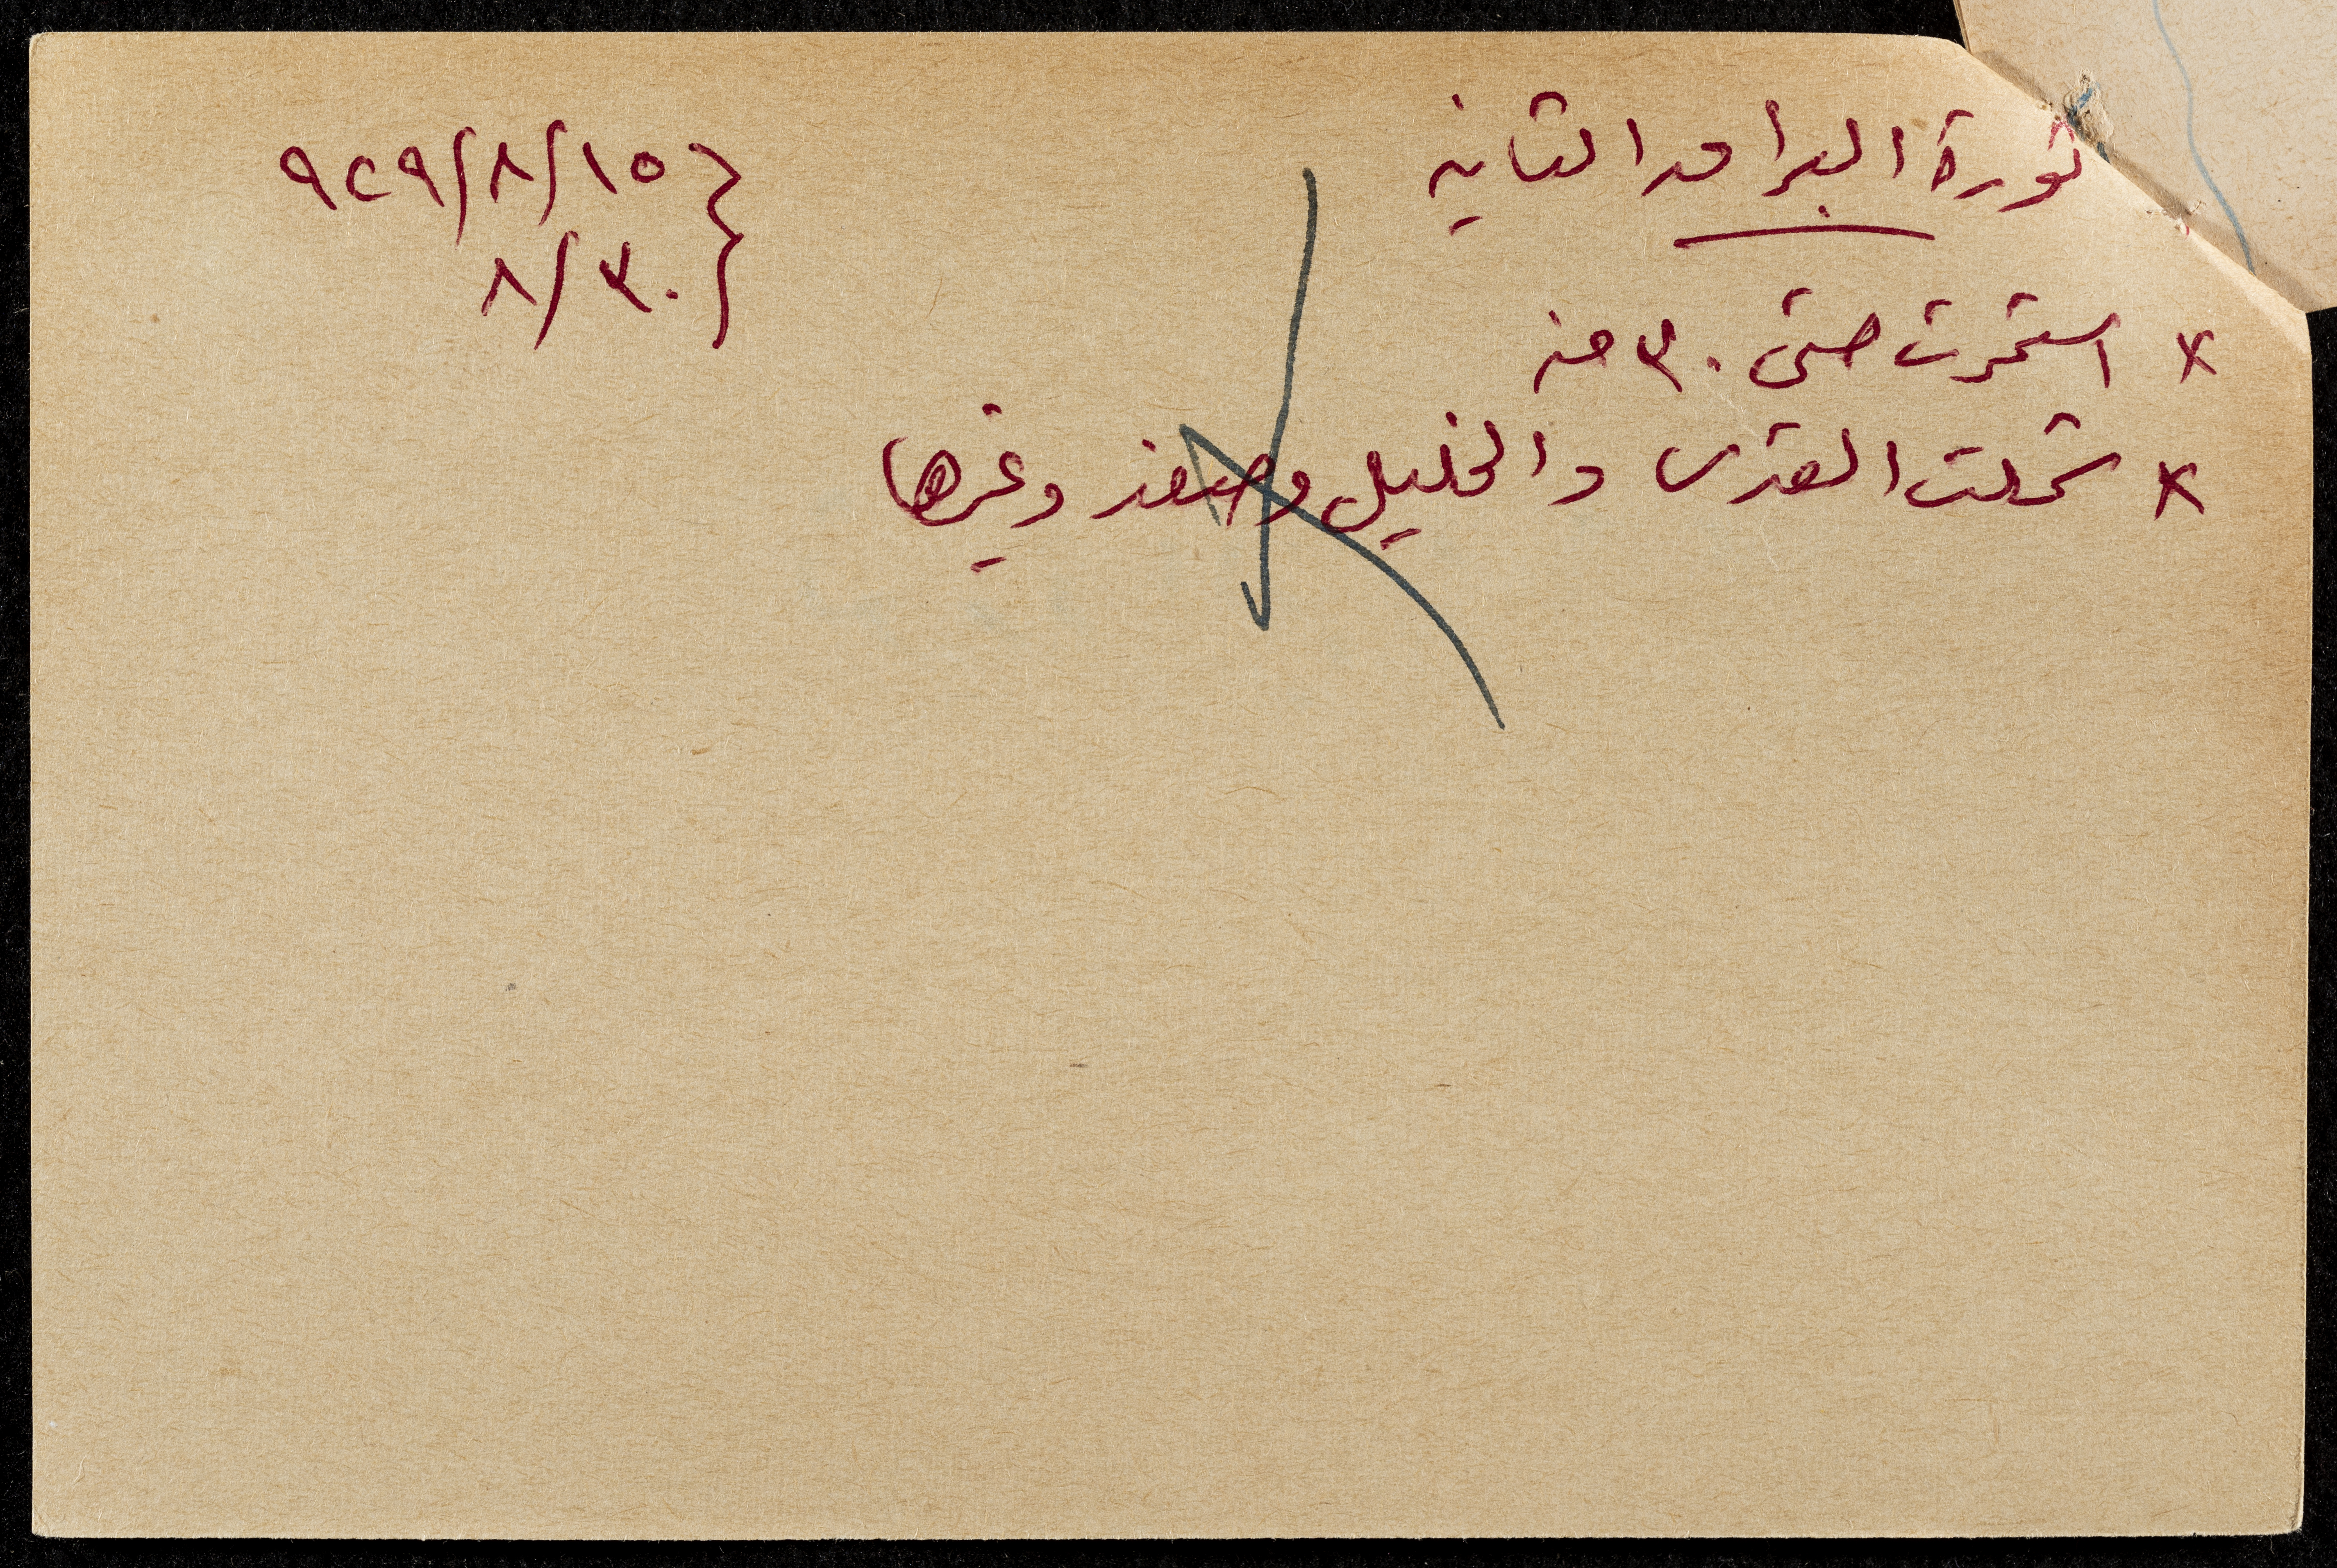 ثورة البراق الثانية
١٥/٨/٩٢٩
٣٠/٨
× استمرت حتى ٣٠ منه
× شملت القدس والخليل وصفد وغيرها